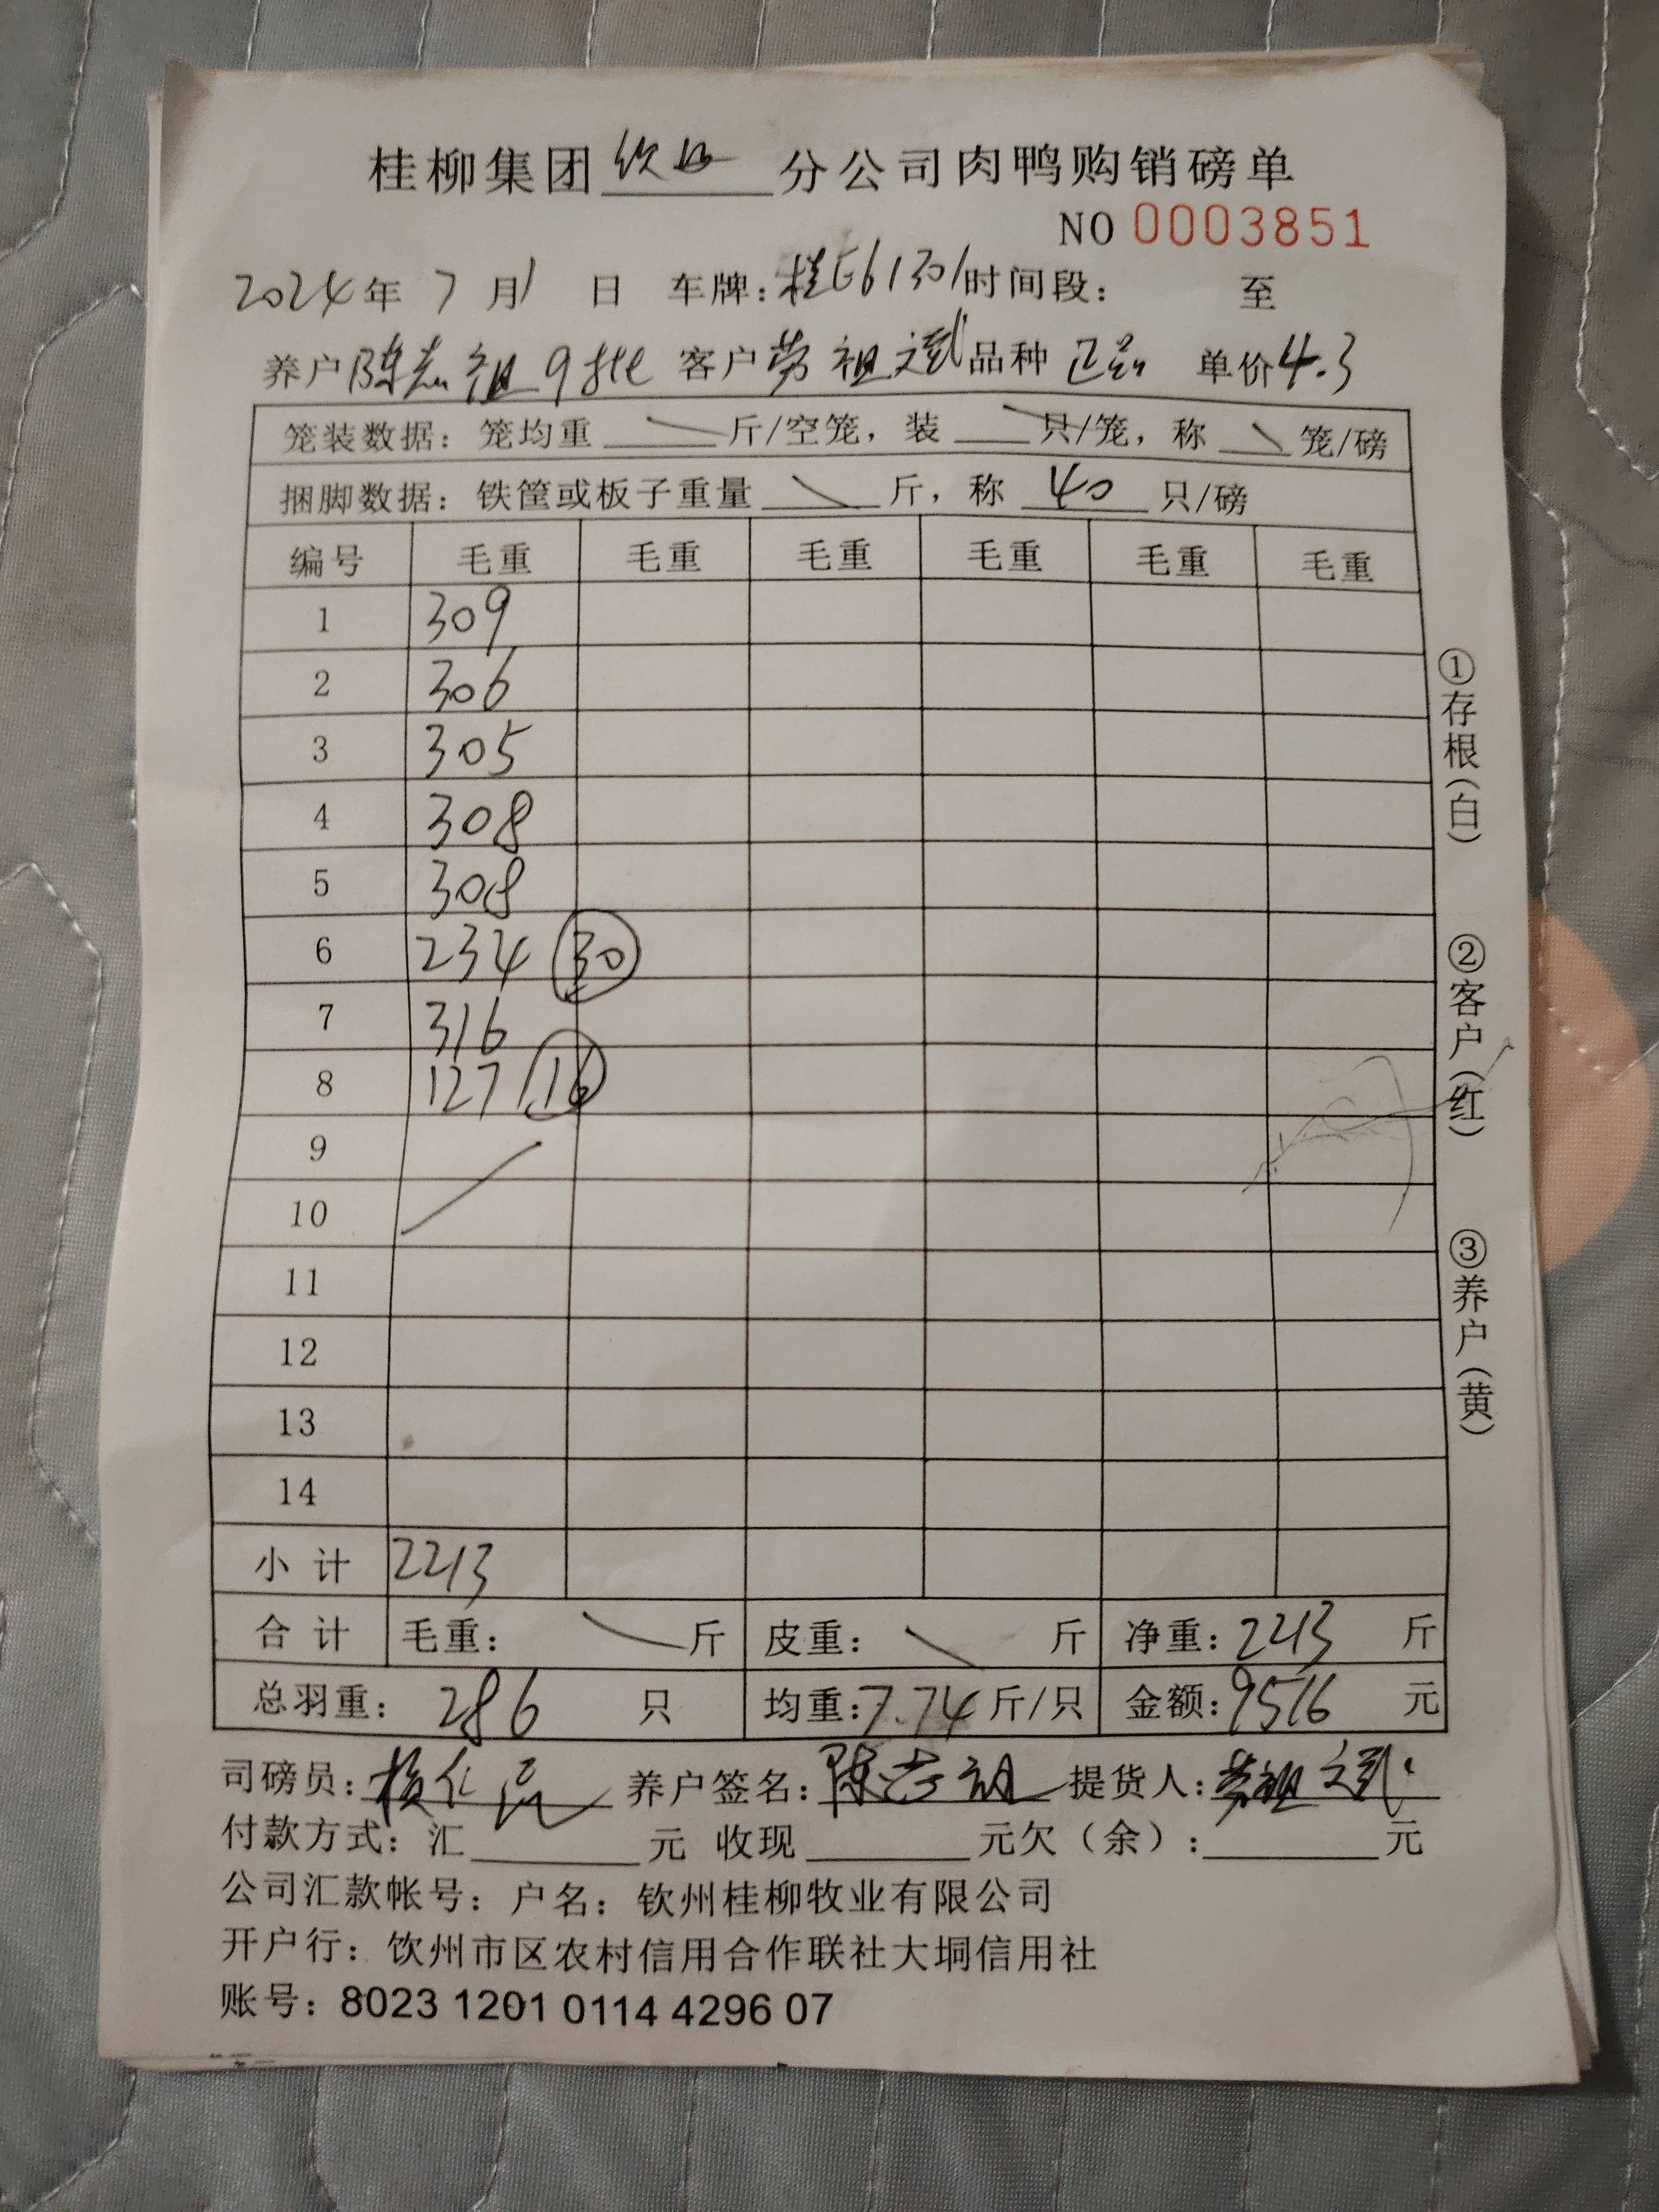 桂柳集团钦州分公司肉鸭购销磅单
NO 0003851
2024年 7 月 1 日 车牌：桂E61301 时间段： 至
养户 陈志祖 9批 客户 劳祖斌 品种 正品 单价 4.3
笼装数据：笼均重 \ 斤/空笼，装 \ 只/笼，称 \ 笼/磅
捆脚数据：铁筐或板子重量 \ 斤，称 40 只/磅
编号 毛重 毛重 毛重 毛重 毛重 毛重
1 309
2 306
3 305
4 308
5 308
6 234 30
7 316
8 127 16
9
10
11
12
13
14
小计 2213
合计 毛重： \ 斤 皮重： \ 斤 净重：2213 斤
总羽重：286 只 均重：7.74 斤/只 金额：9516 元
司磅员： 养户签名：陈志祖 提货人：劳祖斌
付款方式：汇 元 收现 元欠（余）： 元
公司汇款帐号：户名：钦州桂柳牧业有限公司
开户行：饮州市区农村信用合作联社大垌信用社
账号：8023 1201 0114 4296 07
①存根（白）
②客户（红）
③养户（黄）